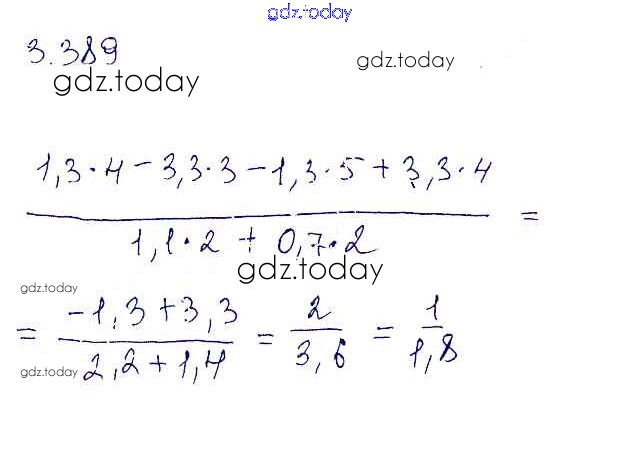 gdz.today
3.389
gdz.today
gdz.today
1,3·4 - 3,3·3 - 1,3·5 + 3,3·4
=
1,1·2 + 0,7·2
gdz.today
gdz.today
= -1,3+3,3 / 2,2+1,4 = 2 / 3,6 = 1 / 1,8
gdz.today